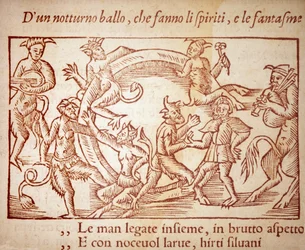 D'un notturno ballo, che fanno li spiriti, e le fantasme
,, Le man legate insieme, in brutto aspetto
,, E con noceuol larue, hirti siluani